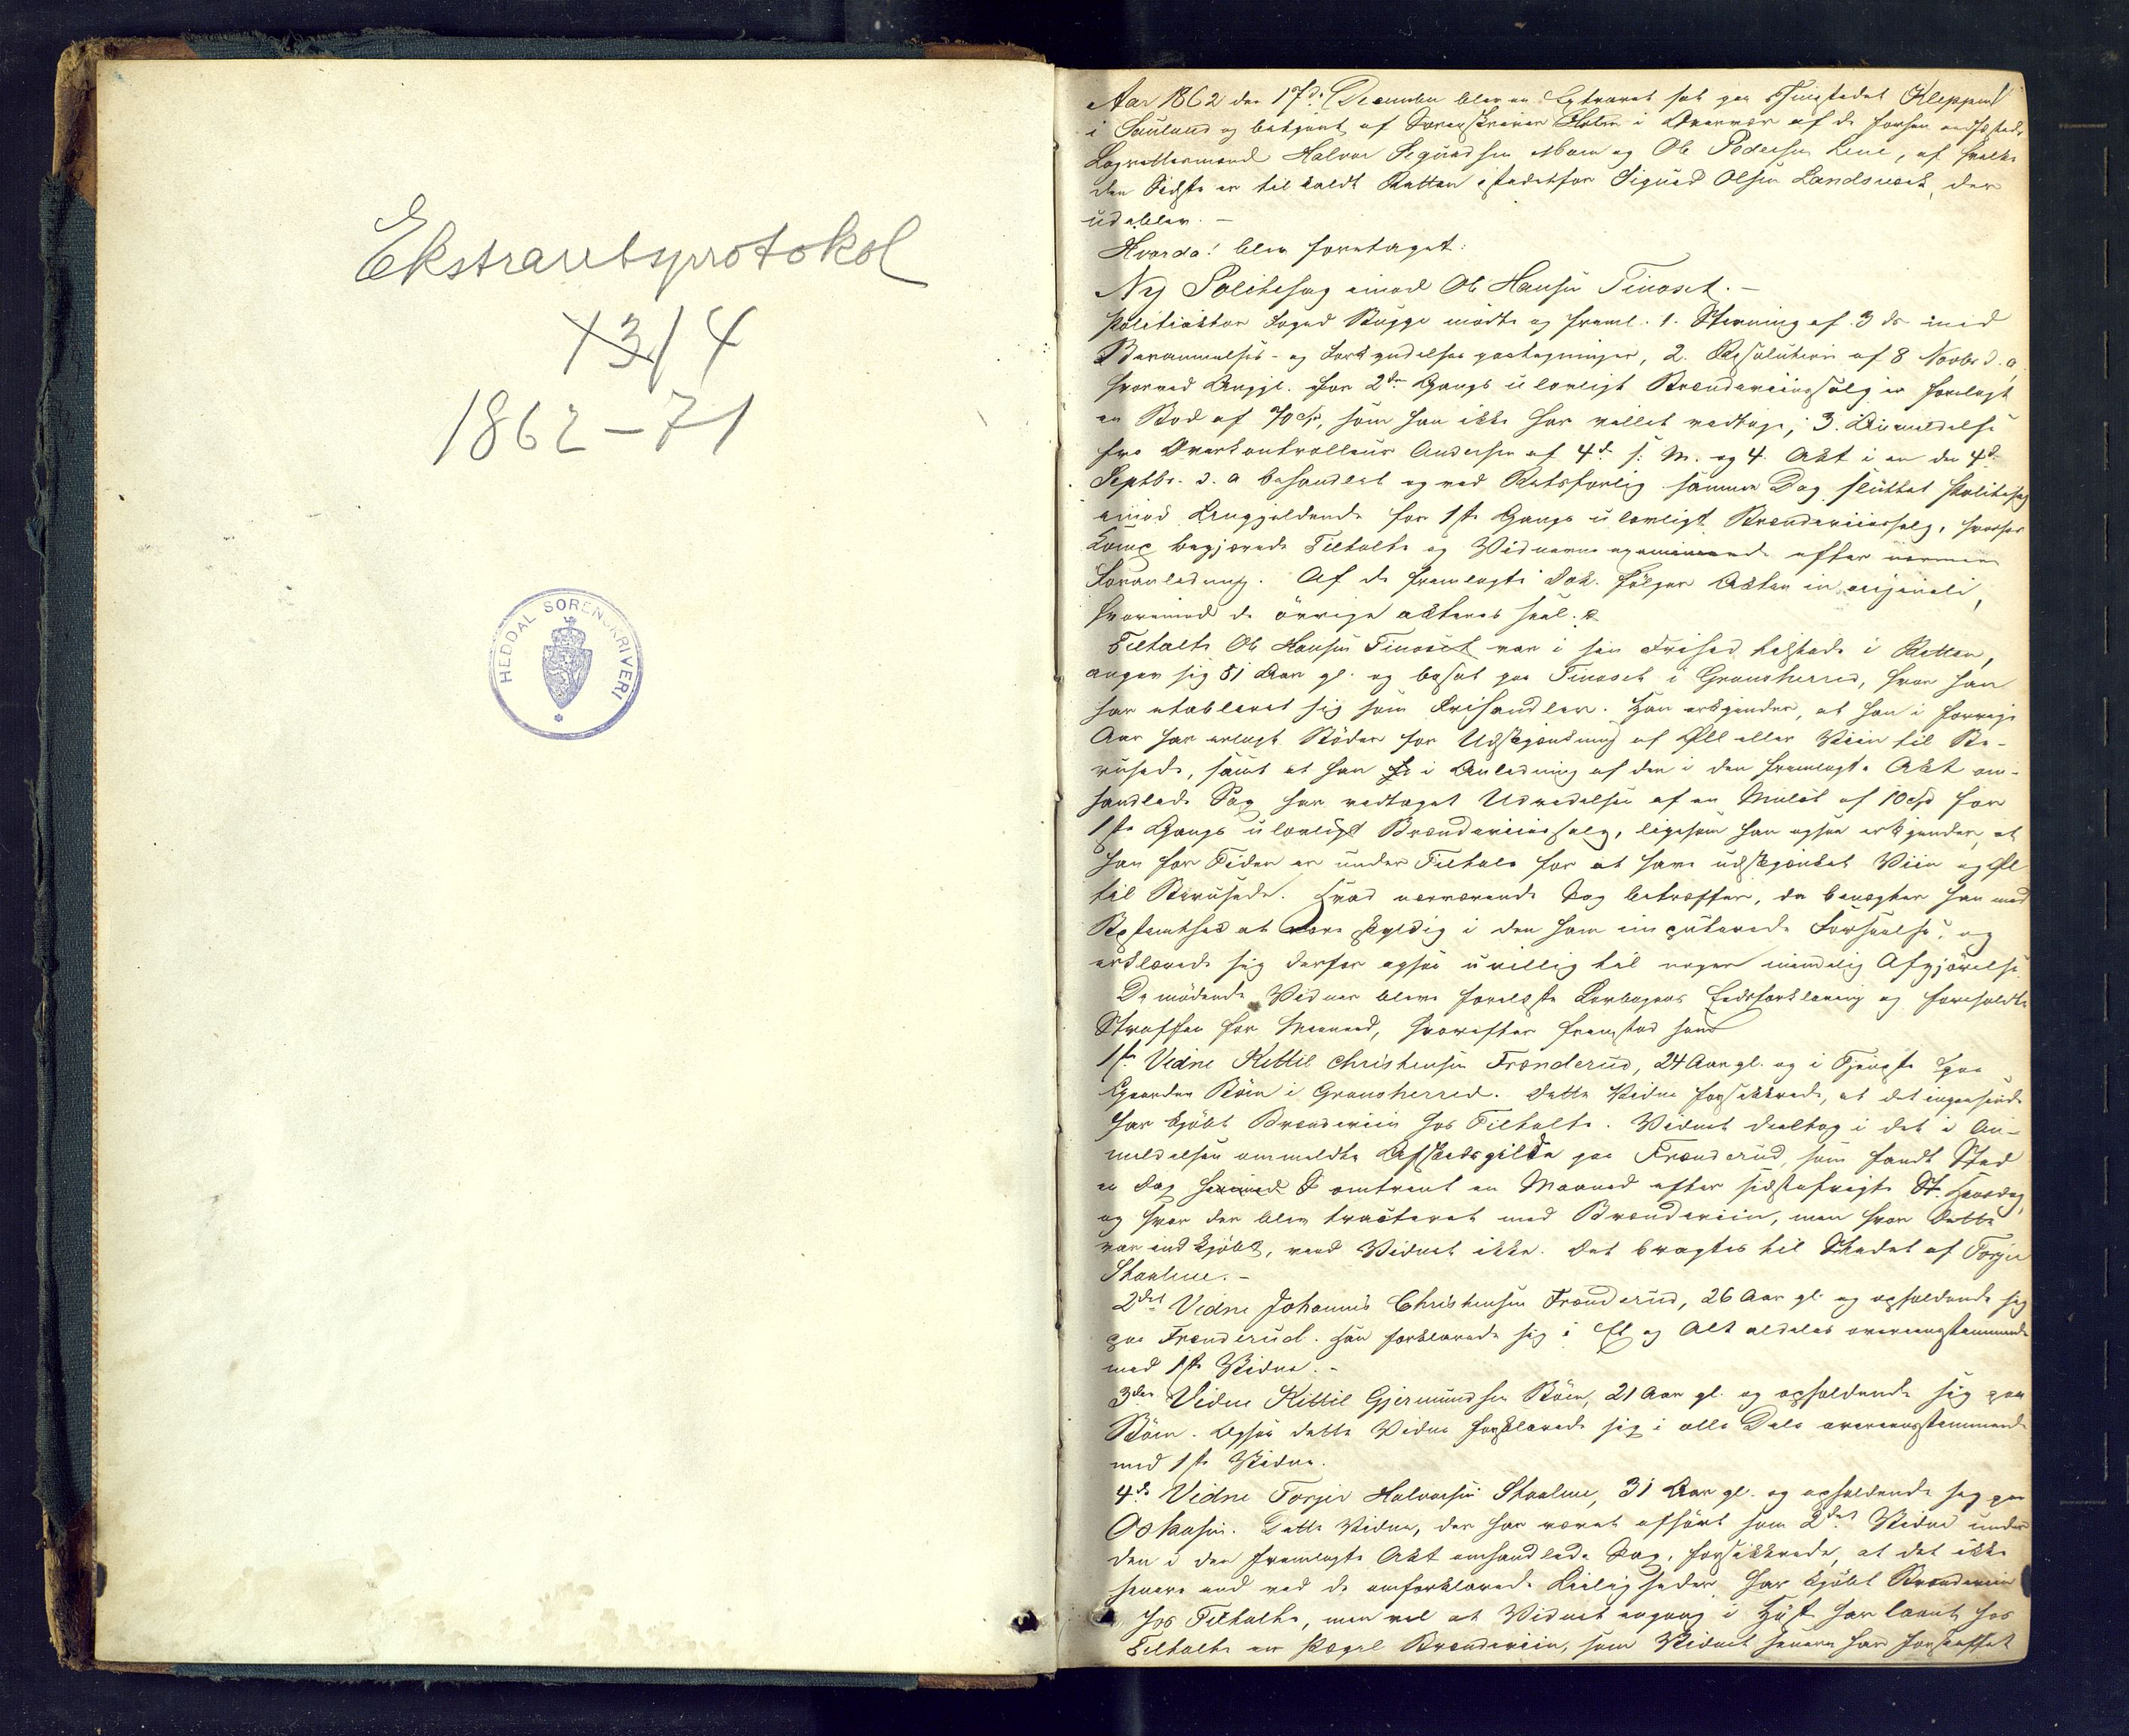 Ekstraretsprotokol
13/4
1862-71
HEDDAL SORENSKRIVERI
Aar 1862 den 17d. December blev en Extraret sat paa Thingstedet Kleppen
i Sauland og betjent af Sorenskriver Holm i Overvær af de forhen eedfæstede
Lagrettesmænd Halvor Sigurdsen Moen og Ole Pedersen Lene, af hvilke
den Sidste er tilkaldt Retten istedetfor Sigurd Olsen Landsverk, der
udeblev. –
Hvorda! blev foretaget:
Ny Politisag imod Ole Hansen Tinoset. –
Politiaktor Foged Bugge mødte og freml. 1. Stevning af 3 ds med
Berammelses- og Forkyndelses paategninger, 2. Resolution af 8 Novbr d. a,
hvorved Angjl. for 2den Gangs ulovligt Brændeviinssalg er forelagt
en Bod af 40 Spd, som han ikke har villet vedtage; 3. Anmeldelse
fra Overkontrolleur Andersen af 4d. s: M. og 4. Akt i en den 4d.
Septbr. d. a behandlet og ved Retsforlig samme Dag sluttet Politisag
imod Angjeldende for 1ste Gangs ulovligt Brændeviinssalg, hvorpaa
Comp begjærede Tiltalte og Vidnerne examinerede efter nærmere
Foranledning. Af de fremlagte Dok. følger Akten in originali,
hvorimod de øvrige akteres saal. :
Tiltalte Ole Hansen Tinoset var i sin Frihed tilstede i Retten,
angav sig 51 Aar gl. og bosat paa Tinoset i Gransherred, hvor han
har etableret sig som Frihandler. Han erkjender, at han i forrige
Aar har erlagt Bøder for Udskjænkning af Øll eller Viin til Be-
rusede, samt at han i Anledning af den i den fremlagte Akt om-
handlede Sag har vedtaget Udredelsen af en Mulct af 10 Spd for
1ste Gangs ulovligt Brændeviinssalg, ligesom han ogsaa erkjender, at
han for Tiden er under Tiltale for at have udskjænket Viin og Øl
til Berusede. Hvad nærværende Sag betræffer, da benægter han med
Bestemthed at være skyldig i den ham imputerede Forseelse, og
erklærede sig derfor ogsaa uvillig til nogen mindelig Afgjørelse.
De mødende Vidner bleve forelæste Lovbogens Eedsforklaring og foreholdte
Straffen for Meeneed, hvorefter fremstod som
1ste Vidne Kittil Christensen Frænderud, 24 Aar gl. og i Tjeneste paa
Gaarden Bøen i Gransherred. Dette Vidne forsikkrede, at det ingensinde
har kjøbt Brændeviin hos Tiltalte. Vidnet deeltog i det i An-
meldelsen ommeldte Afskedsgilde paa Frænderud, som fandt Sted
en Dag omtrent en Maaned efter sidstafvigte St. Hansdag,
og hvor der blev tracteret med Brændeviin, men hvor Dette
var indkjøbt, veed Vidnet ikke. Det bragtes til Stedet af Torjer
Skarlie. –
2det Vidne Johannes Christensen Frænderud, 26 Aar gl. og opholdende sig
paa Frænderud. Han forklarede sig i Et og Alt aldeles overeensstemmende
med 1ste Vidne. –
3die Vidne Kittil Gjermundsen Bøen, 21 Aar gl. og opholdende sig paa
Bøen. Ogsaa dette Vidne forklarede sig i alle Dele overeensstemmende
med 1ste Vidne.
4de Vidne Torjer Halvorsen Skarlie, 31 Aar gl. og opholdende sig paa
Dette Vidne, der har været afhørt som 2det Vidne under
den i den fremlagte Akt omhandlede Sag, forsikkrede, at det ikke
senere end ved de omforklarede Leiligheder har kjøbt Brændeviin
hos Tiltalte, men vel at Vidnet engang i Høst har laant hos
Tiltalte en Pægel Brændeviin, som Vidnet senere har forskaffet